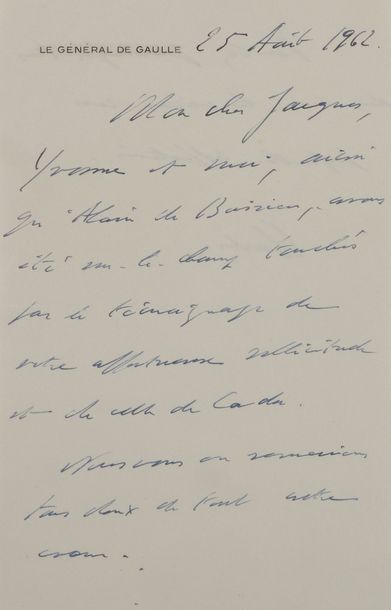 LE GÉNÉRAL DE GAULLE 25 Août 1962.
Mon cher Jacques,
Yvonne et moi, ainsi
qu'Alain de Boissieu, avons
été sur-le-champ touchés
par le témoignage de
votre affectueuse sollicitude
et de celle de Cada.
Nous vous en remercions
tous deux de tout notre
cœur.